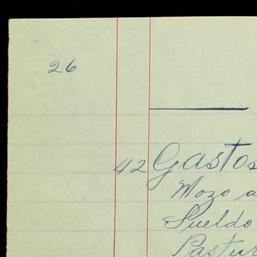 26
42 Gastos
Mozo a
Sueldo
Pastur